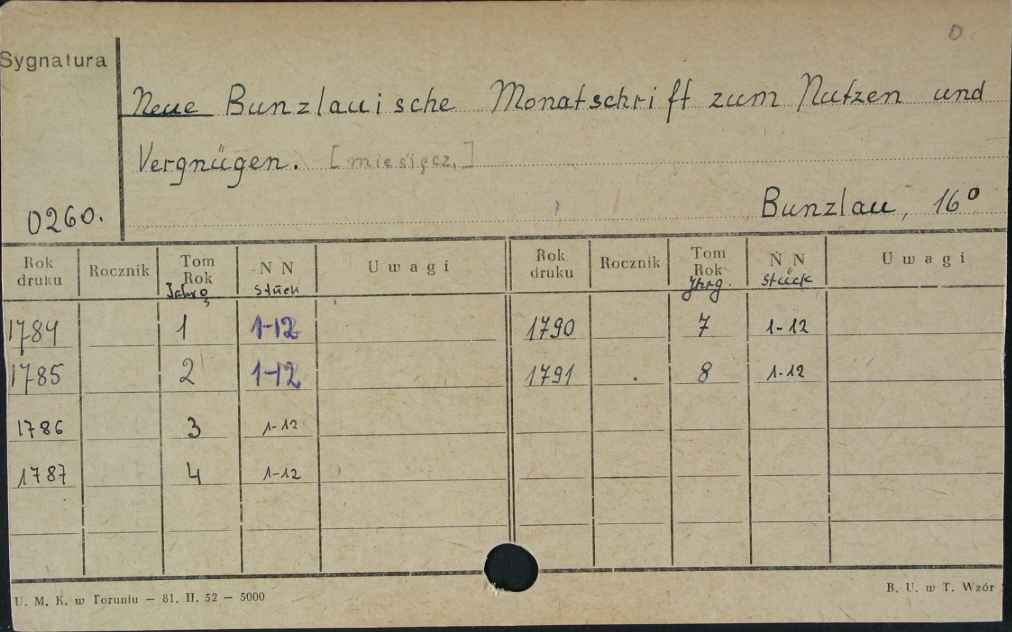 0.
Sygnatura
Neue Bunzlauische Monatschrift zum Nutzen und
Vergnügen. [miesięcz.]
0260.
Bunzlau, 16º
Rok druku Rocznik Tom Rok N N Uwagi Rok druku Rocznik Tom Rok N N Uwagi
Jahrg Stück Jhrg. Stück
1784 1 1-12 1790 7 1-12
1785 2 1-12 1791 8 1-12
1786 3 1-12
1787 4 1-12
U. M. K. w Toruniu — 81. II. 52 — 5000
B. U. w T. Wzór